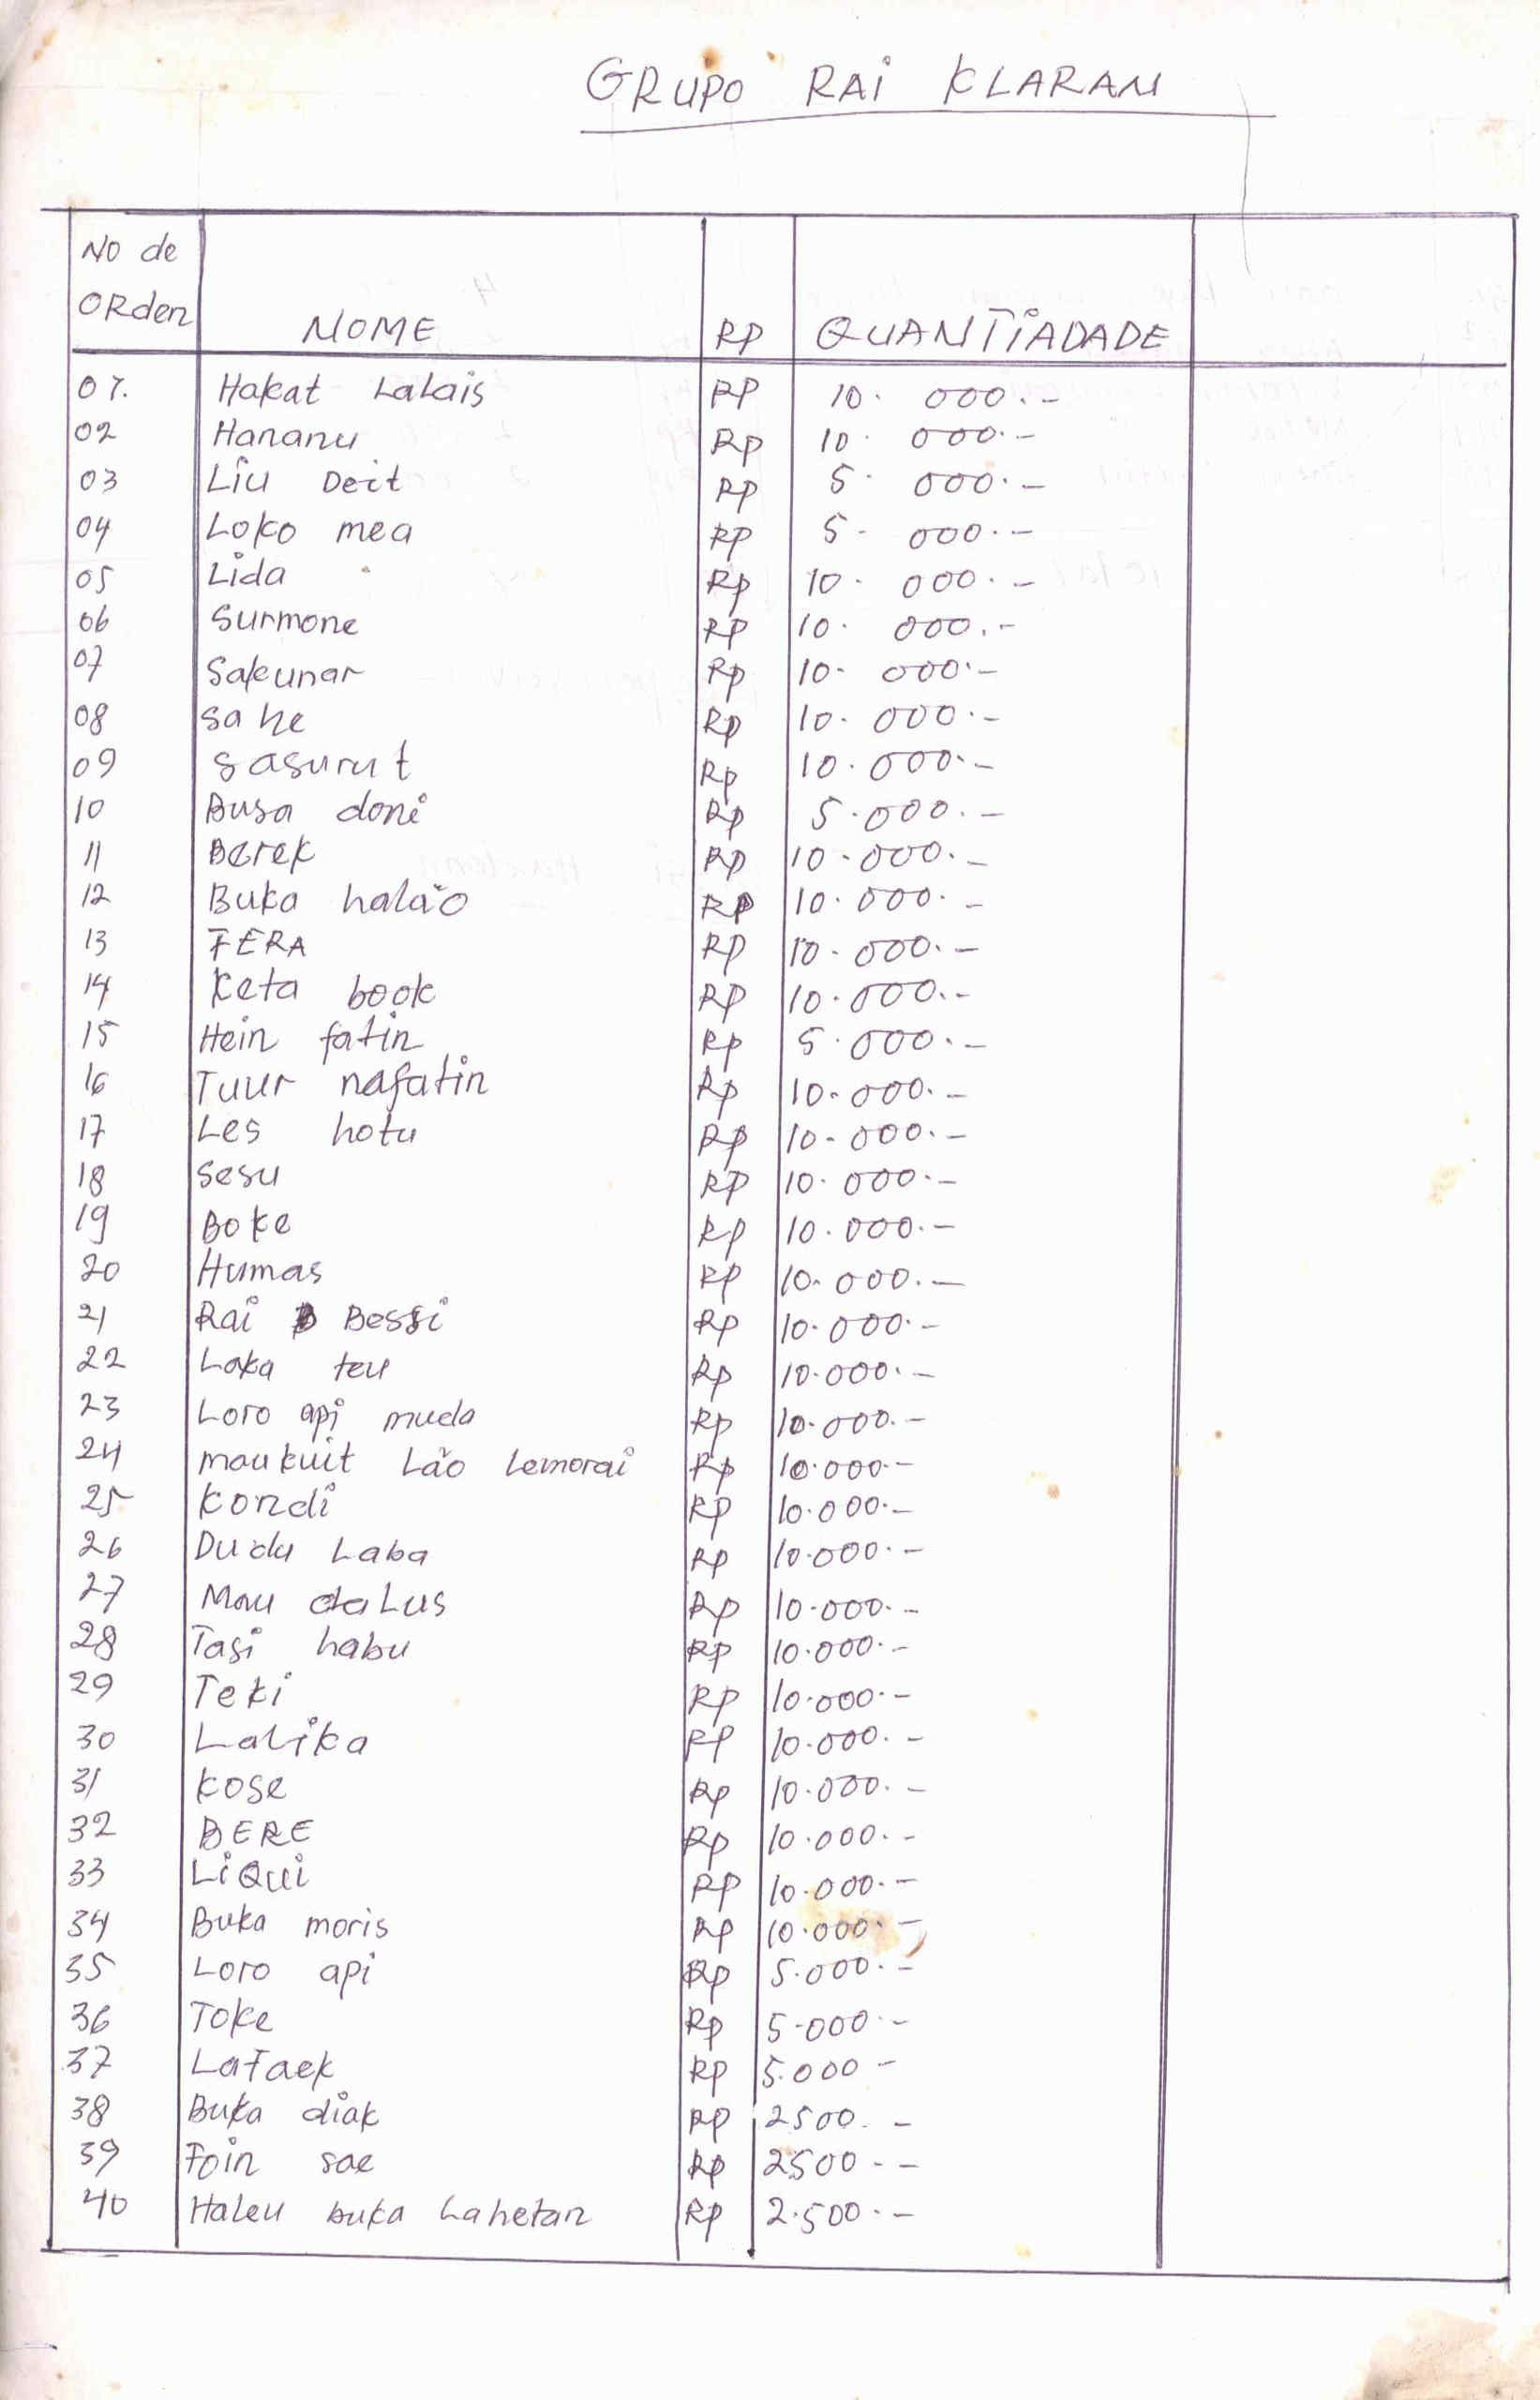 GRUPO RAI KLARAN
No de
ORden NOME RP QUANTIADADE
01. Hakat Lalais RP 10. 000.-
02 Hananu Rp 10. 000.-
03 Liu Deit RP 5. 000.-
04 Loko mea RP 5- 000.-
05 Lida Rp 10. 000.-
06 Surmone RP 10. 000.-
07 Sakunar Rp 10- 000.-
08 Sahe Rp 10. 000.-
09 Sasurut Rp 10.000.-
10 Busa doni Rp 5.000.-
11 Berek RP 10.000.-
12 Buka halão RP 10.000.-
13 FERA RP 10.000.-
14 Keta book RP 10.000.-
15 Hein fatin Rp 5.000.-
16 Tuur nafatin Rp 10.000.-
17 Les hotu Rp 10.000.-
18 Sesu RP 10.000.-
19 Boke RP 10.000.-
20 Humas RP 10.000.-
21 Rai Bessi Rp 10.000.-
22 Laka teu Rp 10.000.-
23 Loro api muda Rp 10.000.-
24 maukuit Lão Lemorai Rp 10.000.-
25 Kondi RP 10.000.-
26 Dudu Laba Rp 10.000.-
27 Mau daLus Rp 10.000.-
28 Tasi habu RP 10.000.-
29 Teki RP 10.000.-
30 Lalika RP 10.000.-
31 Kose Rp 10.000.-
32 BERE Rp 10.000.-
33 LiQui RP 10.000.-
34 Buka moris RP 10.000.-
35 Loro api Rp 5.000.-
36 Toke Rp 5.000.-
37 LaFaek RP 5.000-
38 Buka diak RP 2500.-
39 Foin sae Rp 2500--
40 Haleu buka Lahetan RP 2.500.-